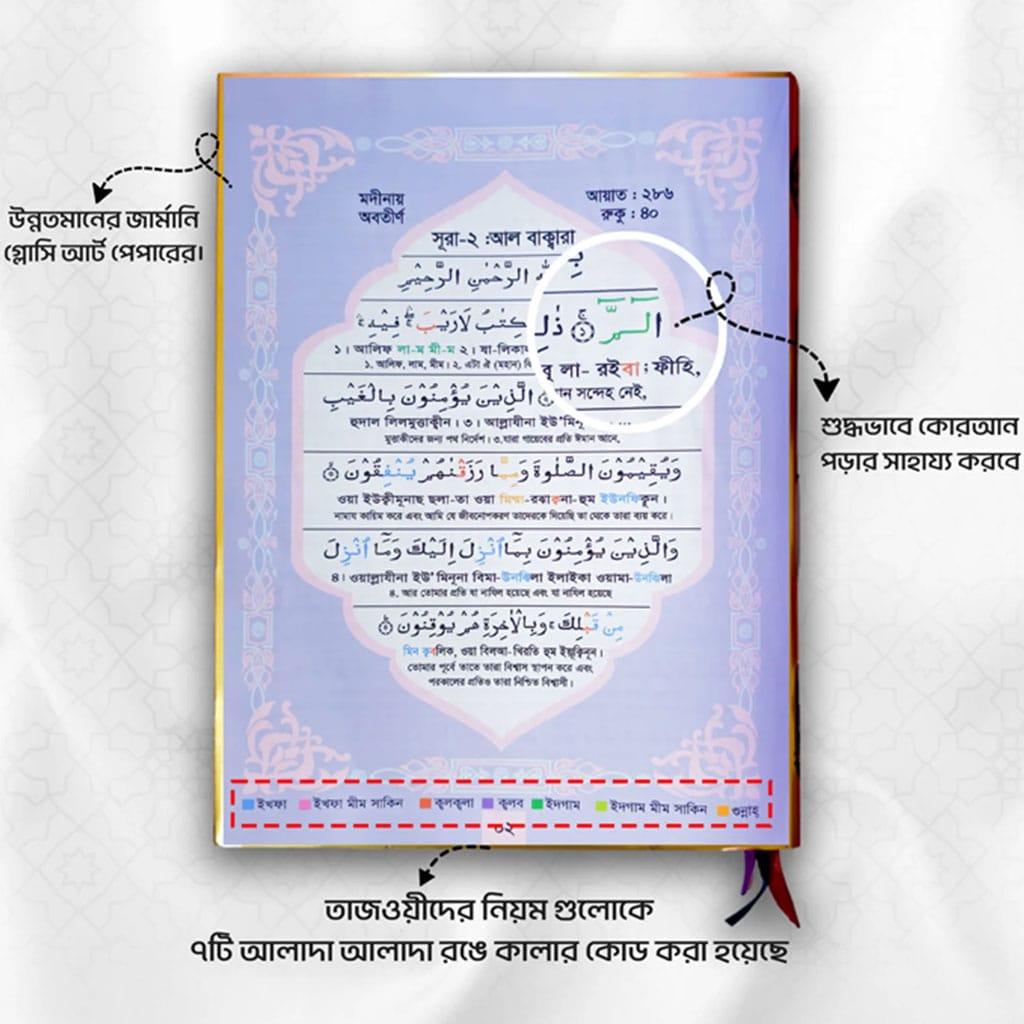 উন্নতমানের জার্মানি
গ্লোসি আর্ট পেপারের।
মদীনায়
অবতীর্ণ
আয়াত : ২৮৬
রুকু : ৪০
সূরা-২ :আল বাক্বারা
الرَّحْمٰنِ الرَّحِيْمِ
الٓـمّٓ ۝١ ذٰلِكَ الْكِتٰبُ لَارَيْبَ ۛ فِيْهِ ۛ
১। আলিফ লা-ম মী-ম ২। যা-লিকাল
বু লা- রইবা; ফীহি,
১. আলিফ, লাম, মীম। ২. এটা ঐ (মহান)
সন্দেহ নেই,
الَّذِيْنَ يُؤْمِنُوْنَ بِالْغَيْبِ
হুদাল লিলমুত্তাক্বীন। ৩। আল্লাযীনা ইউ'মিনূ
মুত্তাকীদের জন্য পথ নির্দেশ। ৩.যারা গায়েবের প্রতি ঈমান আনে,
وَيُقِيْمُوْنَ الصَّلٰوةَ وَمِمَّا رَزَقْنٰهُمْ يُنْفِقُوْنَ ۝٣
ওয়া ইউক্বীমূনাছ ছলা-তা ওয়া মিম্মা-রঝাকনা-হুম ইউনফিকূন।
নামায কায়িম করে এবং আমি যে জীবনোপকরণ তাদেরকে দিয়েছি তা থেকে তারা ব্যয় করে।
وَالَّذِيْنَ يُؤْمِنُوْنَ بِمَآ اُنْزِلَ اِلَيْكَ وَمَآ اُنْزِلَ
৪। ওয়াল্লাযীনা ইউ'মিনূনা বিমা-উনঝিলা ইলাইকা ওয়ামা-উনঝিলা
৪. আর তোমার প্রতি যা নাযিল হয়েছে এবং যা নাযিল হয়েছে
مِنْ قَبْلِكَ ۚ وَبِالْاٰخِرَةِ هُمْ يُوْقِنُوْنَ ۝٤
মিন ক্ববলিক, ওয়া বিলআ-খিরতি হুম ইয়ূক্বিনূন।
তোমার পূর্বে তাতে তারা বিশ্বাস স্থাপন করে এবং
পরকালের প্রতিও তারা নিশ্চিত বিশ্বাসী।
শুদ্ধভাবে কোরআন
পড়ার সাহায্য করবে
ইখফা ইখফা মীম সাকিন ক্বলক্বলা ক্বলব ইদগাম ইদগাম মীম সাকিন গুন্নাহ্
০২
তাজওয়ীদের নিয়ম গুলোকে
৭টি আলাদা আলাদা রঙে কালার কোড করা হয়েছে